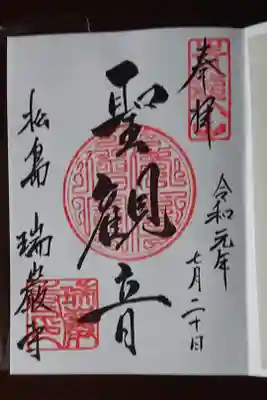 奉拝
令和元年
七月二十日
聖観音
松島 瑞巌寺